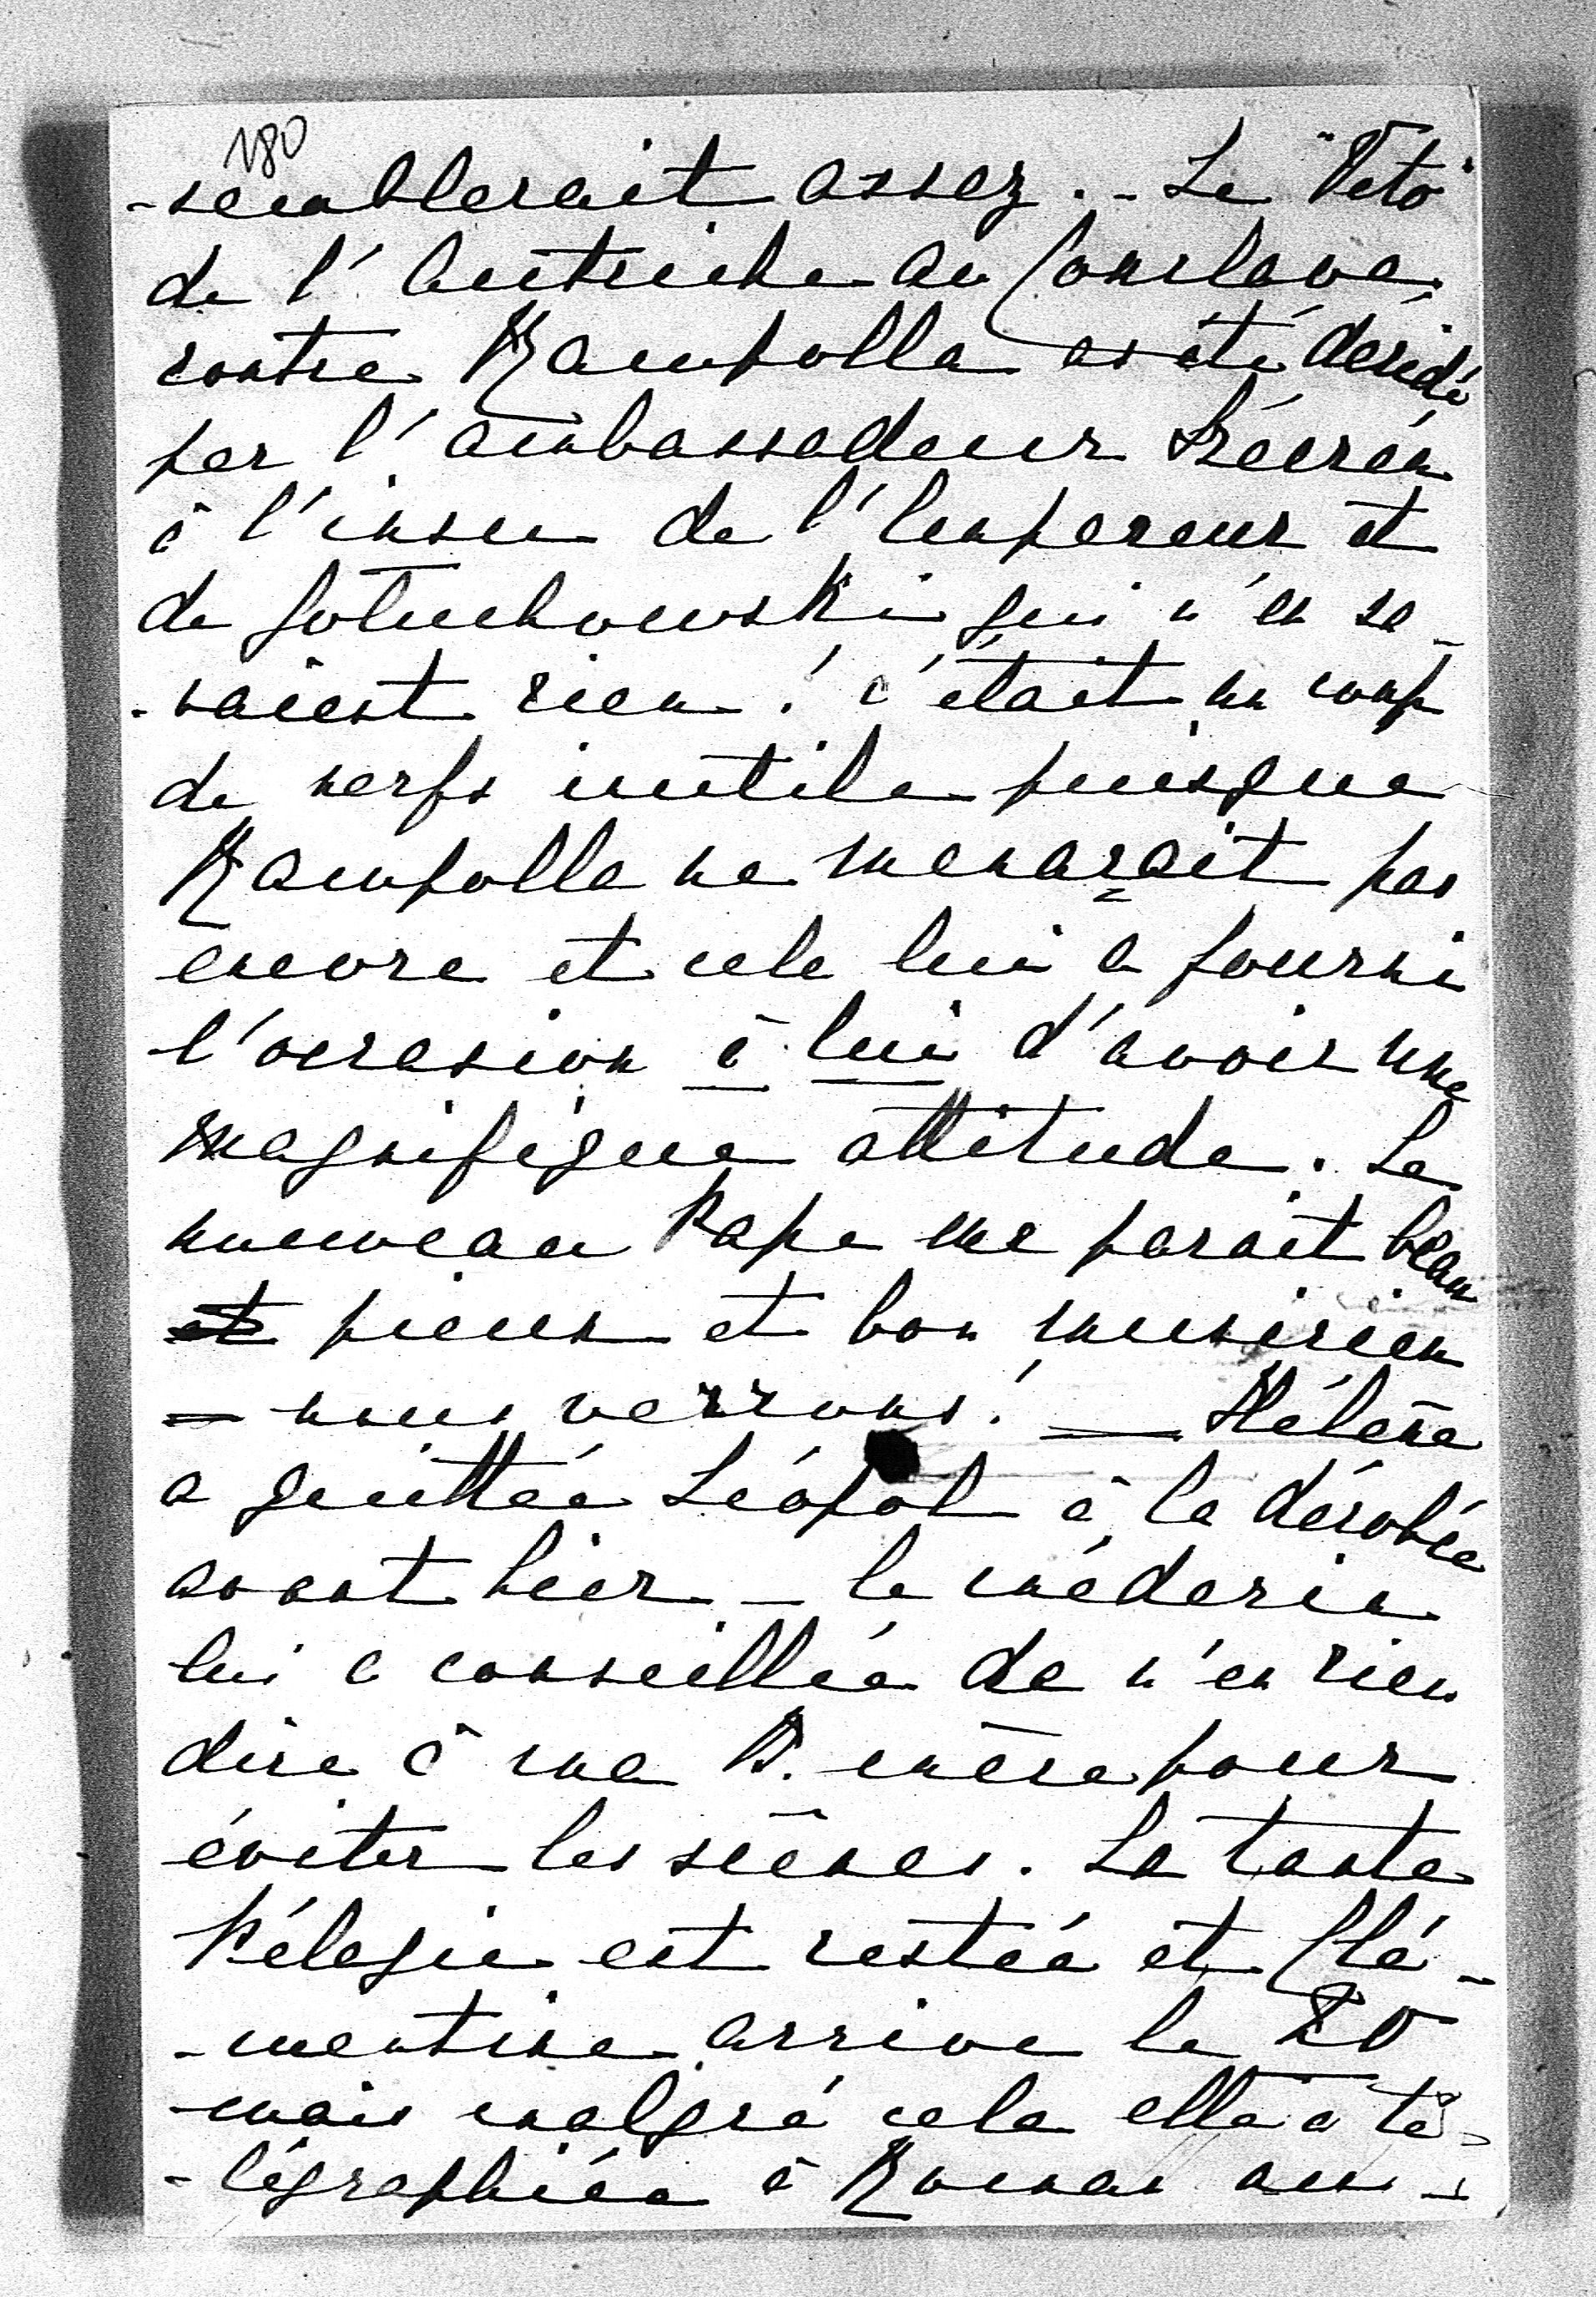 180
-semblerait assez. - Le "Veto"
de l'Autriche au Conclave
contre Rampolla a été décidé
par l'ambassadeur Szécsén
à l'insu de l'Empereur et
de Gołuchowski qui n'en sa-
-vaient rien ! c'était un coup
de nerfs inutile puisque
Rampolla ne menaçait pas
encore et cela lui a fourni
l'occasion à lui d'avoir une
magnifique attitude. Le
nouveau Pape me parait beau
et pieux et bon musicien
- nous verrons ! — Hélène
a quittée Léopol à la dérobée
avant hier - le médecin
lui a conseillée de n'en rien
dire à ma B. mère pour
éviter les scènes. La tante
Pélagie est restée et Clé-
-mentine arrive le 20
mais malgré cela elle a té-
-légraphiée à Roman aus-